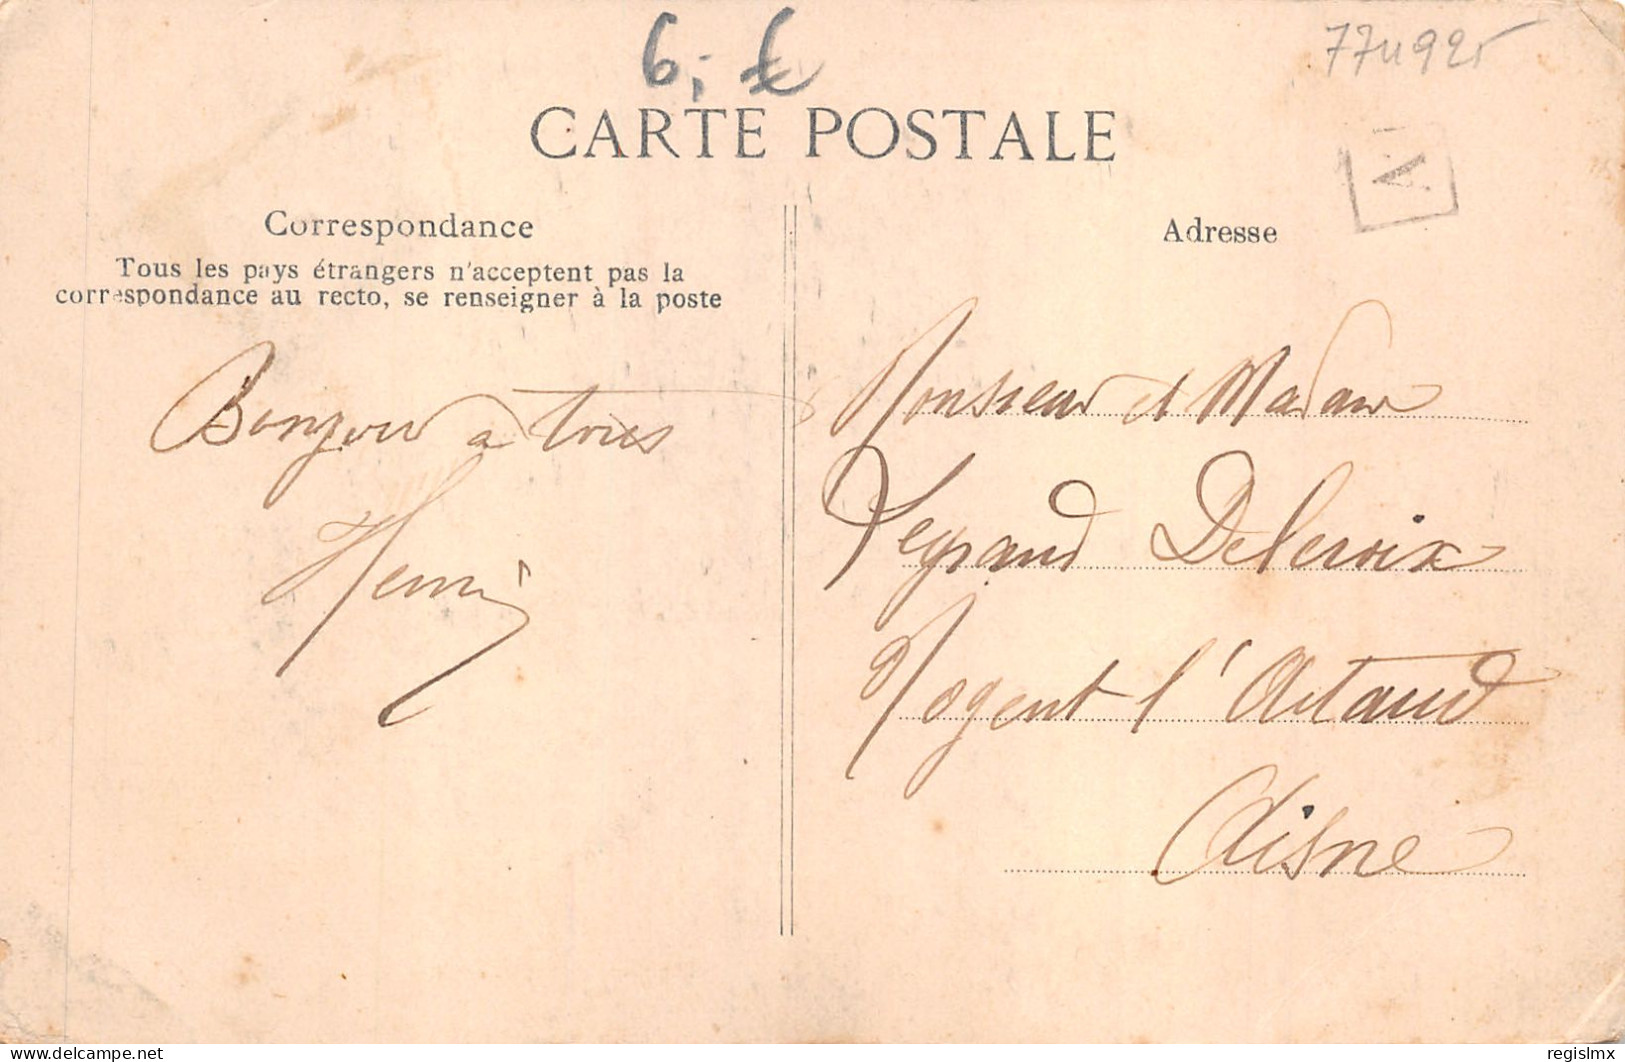 6,- €
774925
CARTE POSTALE
Correspondance
Tous les pays étrangers n'acceptent pas la
correspondance au recto, se renseigner à la poste
Bonjour a tous
Henri
Adresse
Monsieur et Madame
Legrand Delcroix
Nogent l'Artaud
Aisne
Delcampe.net
regislmx